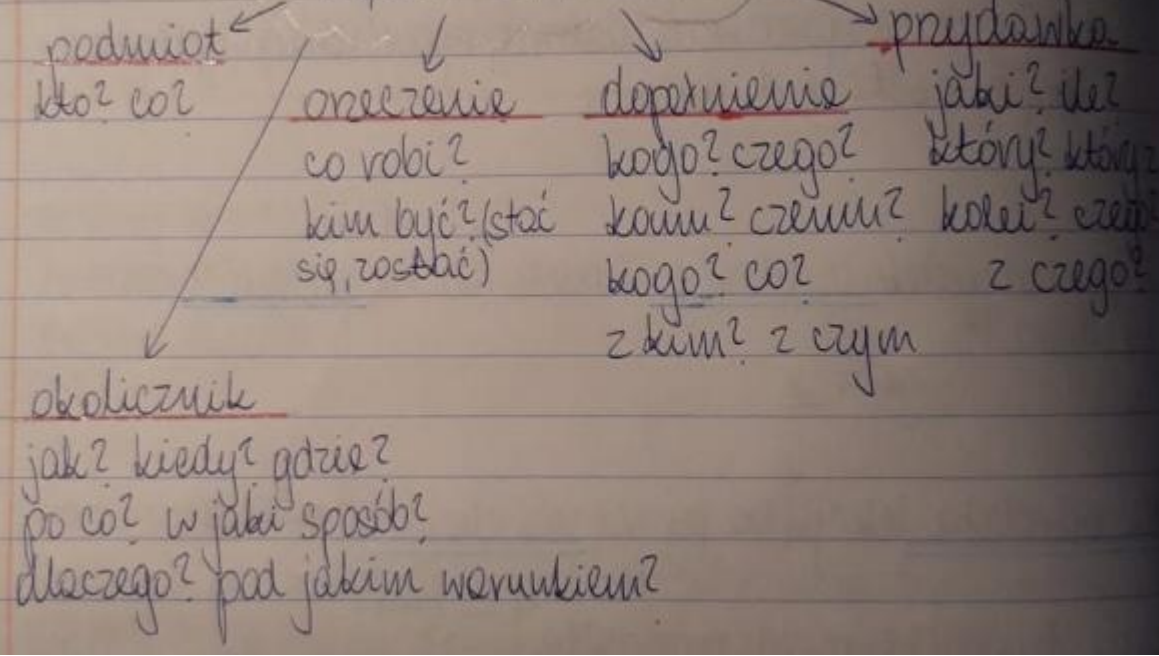 podmiot
kto? co?
orzeczenie
co robi?
kim być? (stać
się, zostać)
dopełnienie
kogo? czego?
komu? czemu?
kogo? co?
z kim? z czym
przydawka
jaki? ile?
który?
czego?
z czego?
okolicznik
jak? kiedy? gdzie?
po co? w jaki sposób?
dlaczego? pod jakim warunkiem?